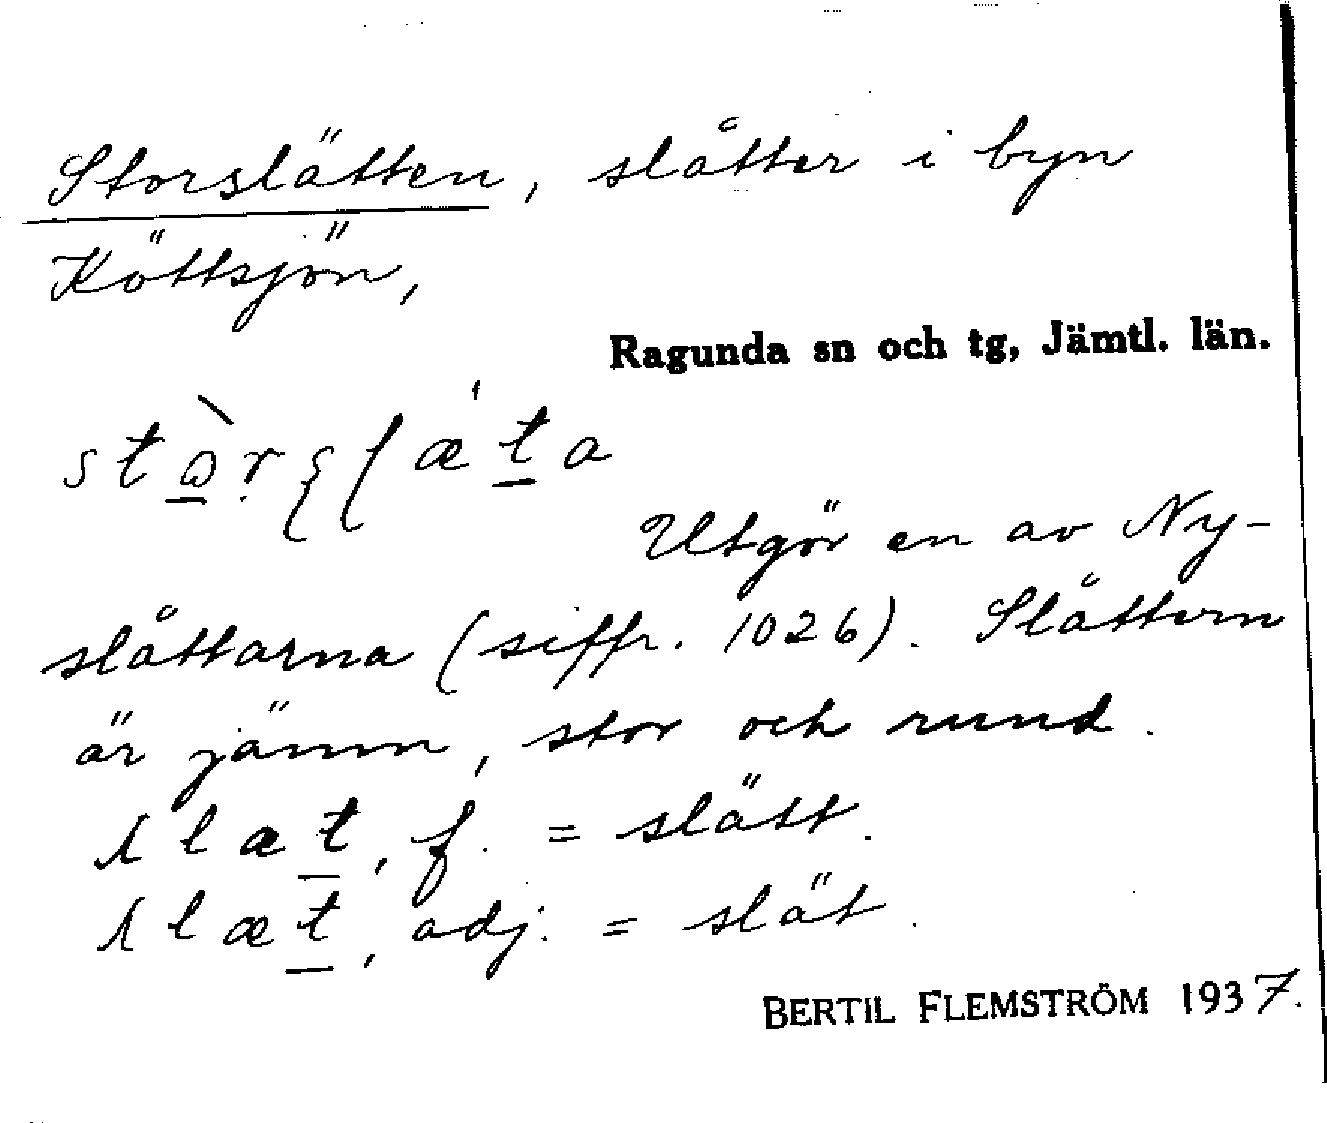 Storslätten, slåtter i byn
Köttsjön,
Ragunda sn och tg, Jämtl. län.
Utgör en av Ny-
slåttarna (siffr. 1026). Slåttern
är jämn, stor och rund.
slæt, f. = slätt.
slæt, adj. = slät.
BERTIL FLEMSTRÖM 1937.